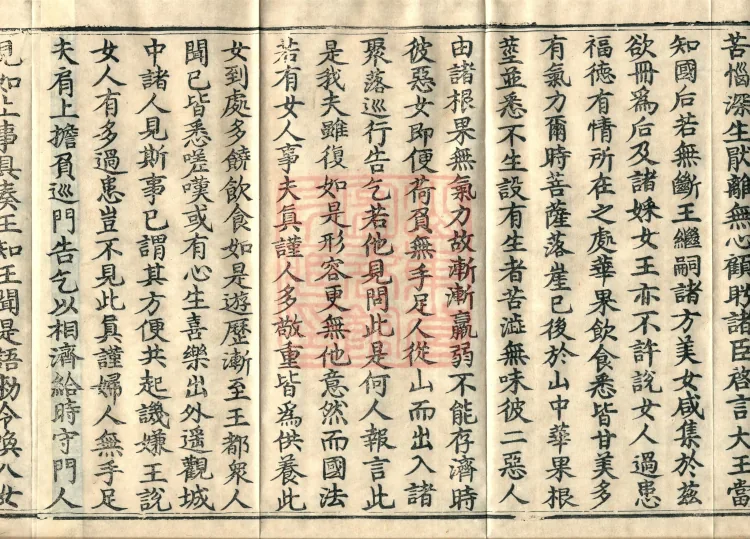 苦惱深生猒離無心顧眄諸臣啓言大王當
知國后若無斷王繼嗣諸方美女咸集於茲
欲冊爲后及諸婇女王亦不許說女人過患
福德有情所在之處華果飲食悉皆甘美多
有氣力爾時菩薩落崖已後於山中華果根
莖並悉不生設有生者苦澁無味彼二惡人
由諸根果無氣力故漸漸羸弱不能存濟時
彼惡女即便荷負無手足人從山而出入諸
聚落巡行告乞若他見問此是何人報言此
是我夫雖復如是形容更無他意然而國法
若有女人事夫眞謹人多敬重皆爲供養此
女到處多饒飲食如是遊歷漸至王都衆人
聞已皆悉嗟嘆或有心生喜樂出外遥觀城
中諸人見斯事已謂其方便共起譏嫌王說
女人有多過患豈不見此眞謹婦人無手足
夫肩上擔負巡門告乞以相濟給時守門人
見如上事具奏王知王聞是語勑令喚入女